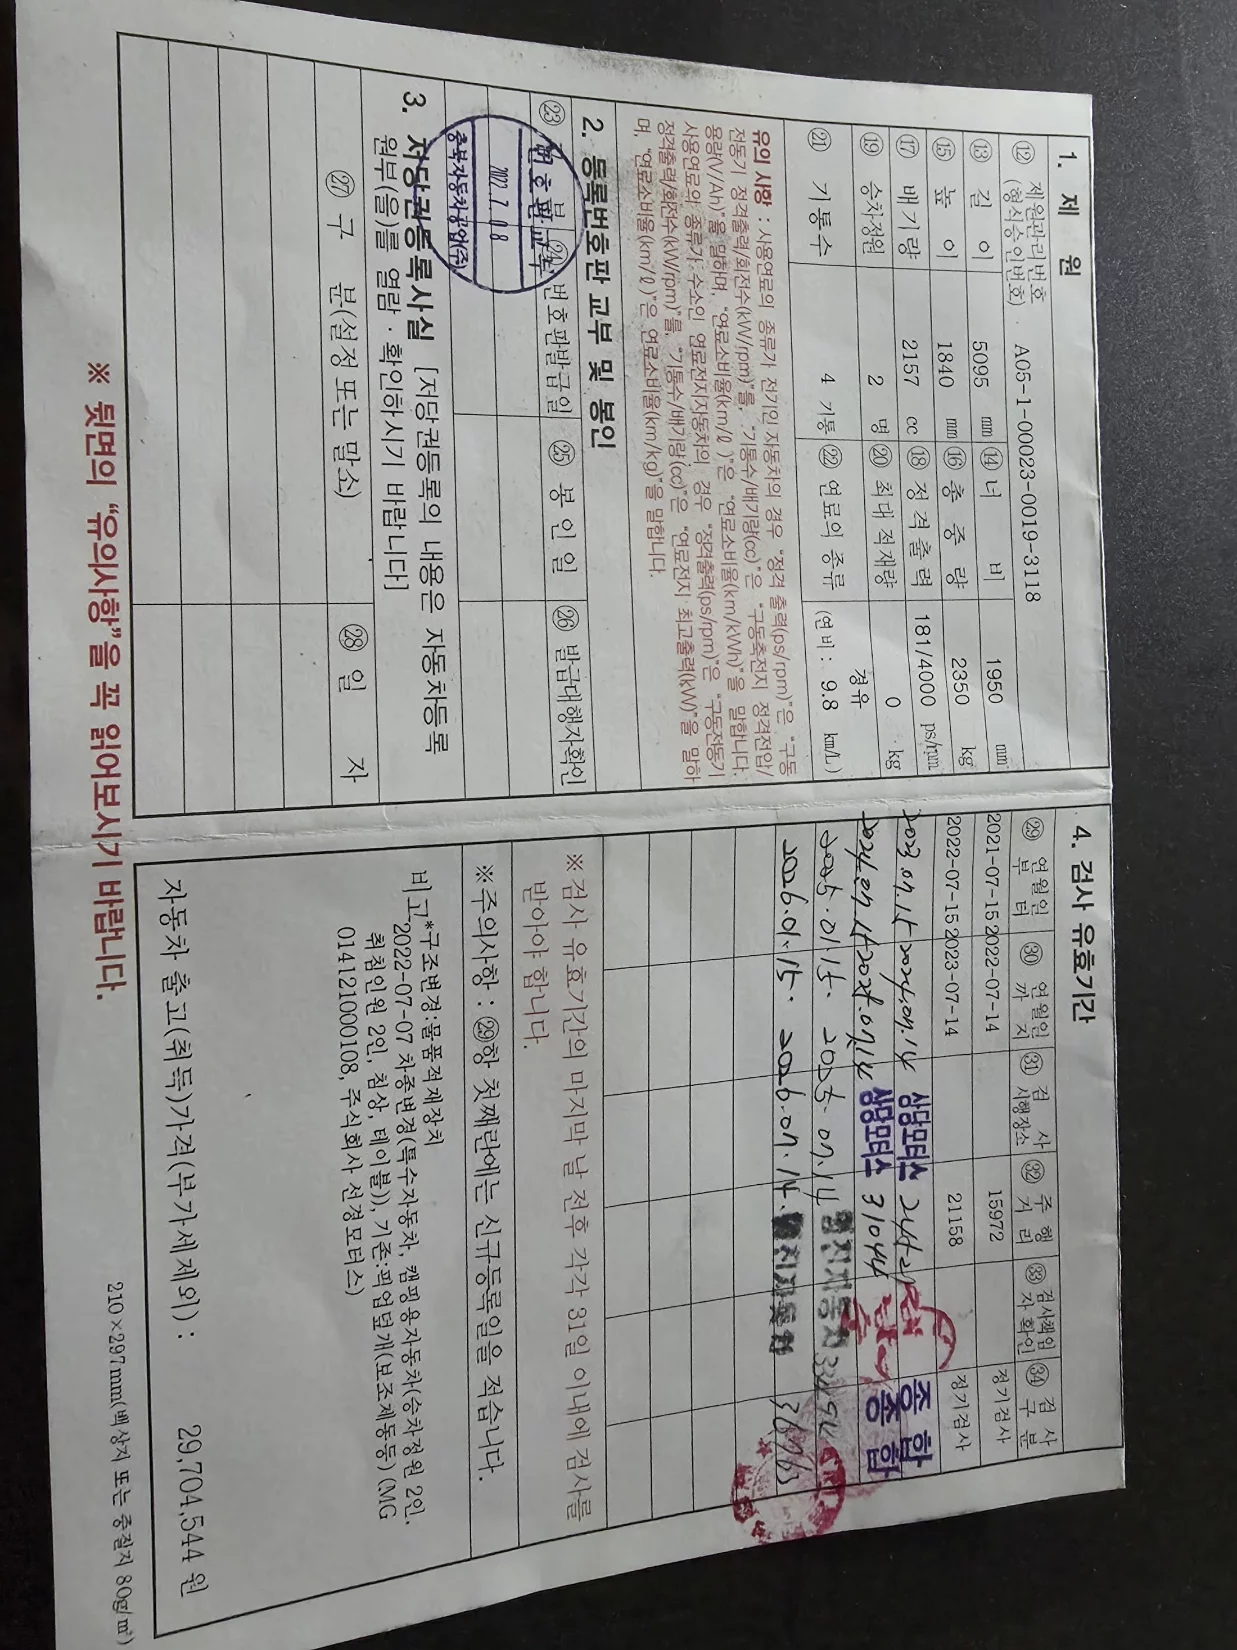 1. 제 원
⑫ 제원관리번호 (형식승인번호) A05-1-00023-0019-3118
⑬ 길 이 5095 mm ⑭ 너 비 1950 mm
⑮ 높 이 1840 mm ⑯ 총 중 량 2350 kg
⑰ 배기량 2157 cc ⑱ 정격출력 181/4000 ps/rpm
⑲ 승차정원 2 명 ⑳ 최대적재량 0 kg
㉑ 기통수 4 기통 ㉒ 연료의 종류 경유 (연비 : 9.8 km/L)
유의 사항 : 사용연료의 종류가 전기인 자동차의 경우 "정격 출력(ps/rpm)"은 "구동
전동기 정격출력/회전수(kW/rpm)"를, "기통수/배기량(cc)"은 "구동축전지 정격전압/
용량(V/Ah)"을 말하며, "연료소비율(km/ℓ)"은 "연료소비율(km/kWh)"을 말합니다.
사용연료의 종류가 수소인 연료전지자동차의 경우 "정격출력(ps/rpm)"은 "구동전동기
정격출력/회전수(kW/rpm)"를, "기통수/배기량(cc)"은 "연료전지 최고출력(kW)"을 말하
며, "연료소비율(km/ℓ)"은 연료소비율(km/kg)"을 말합니다.
2. 등록번호판 교부 및 봉인
㉓ 구 분 ㉔ 번호판발급일 ㉕ 봉 인 일 ㉖ 발급대행자확인
번호판교부
2022. 7. 08
충북자동차공업(주)
3. 저당권등록사실 [저당권등록의 내용은 자동차등록
원부(을)를 열람 · 확인하시기 바랍니다]
㉗ 구 분(설정 또는 말소) ㉘ 일 자
※ 뒷면의 "유의사항"을 꼭 읽어보시기 바랍니다.
4. 검사 유효기간
㉙ 연월일 부 터 ㉚ 연월일 까 지 ㉛ 검 사 시행장소 ㉜ 주 행 거 리 ㉝ 검사책임 자 확인 ㉞ 검 사 구 분
2021-07-15 2022-07-14 15972 정기검사
2022-07-15 2023-07-14 21158 정기검사
2023.07.15 2024.07.14 상당모터스 종합
2024.07.15 2025.01.14 상당모터스 31044 종합
2025.01.15. 2025.07.14
2026.01.15. 2026.07.14.
※ 검사 유효기간의 마지막 날 전후 각각 31일 이내에 검사를
받아야 합니다.
※주의사항 : ㉙항 첫째란에는 신규등록일을 적습니다.
비고*구조변경:물품적재장치
2022-07-07 차종변경(특수자동차, 캠핑용자동차(승차정원 2인,
취침인원 2인, 침상, 테이블)), 기존:픽업덮개(보조제동등) (MG
014121000108, 주식회사 선경모터스)
자동차 출고(취득)가격(부가세제외) : 29,704,544 원
210×297㎜(백상지 또는 중질지 80g/㎡)